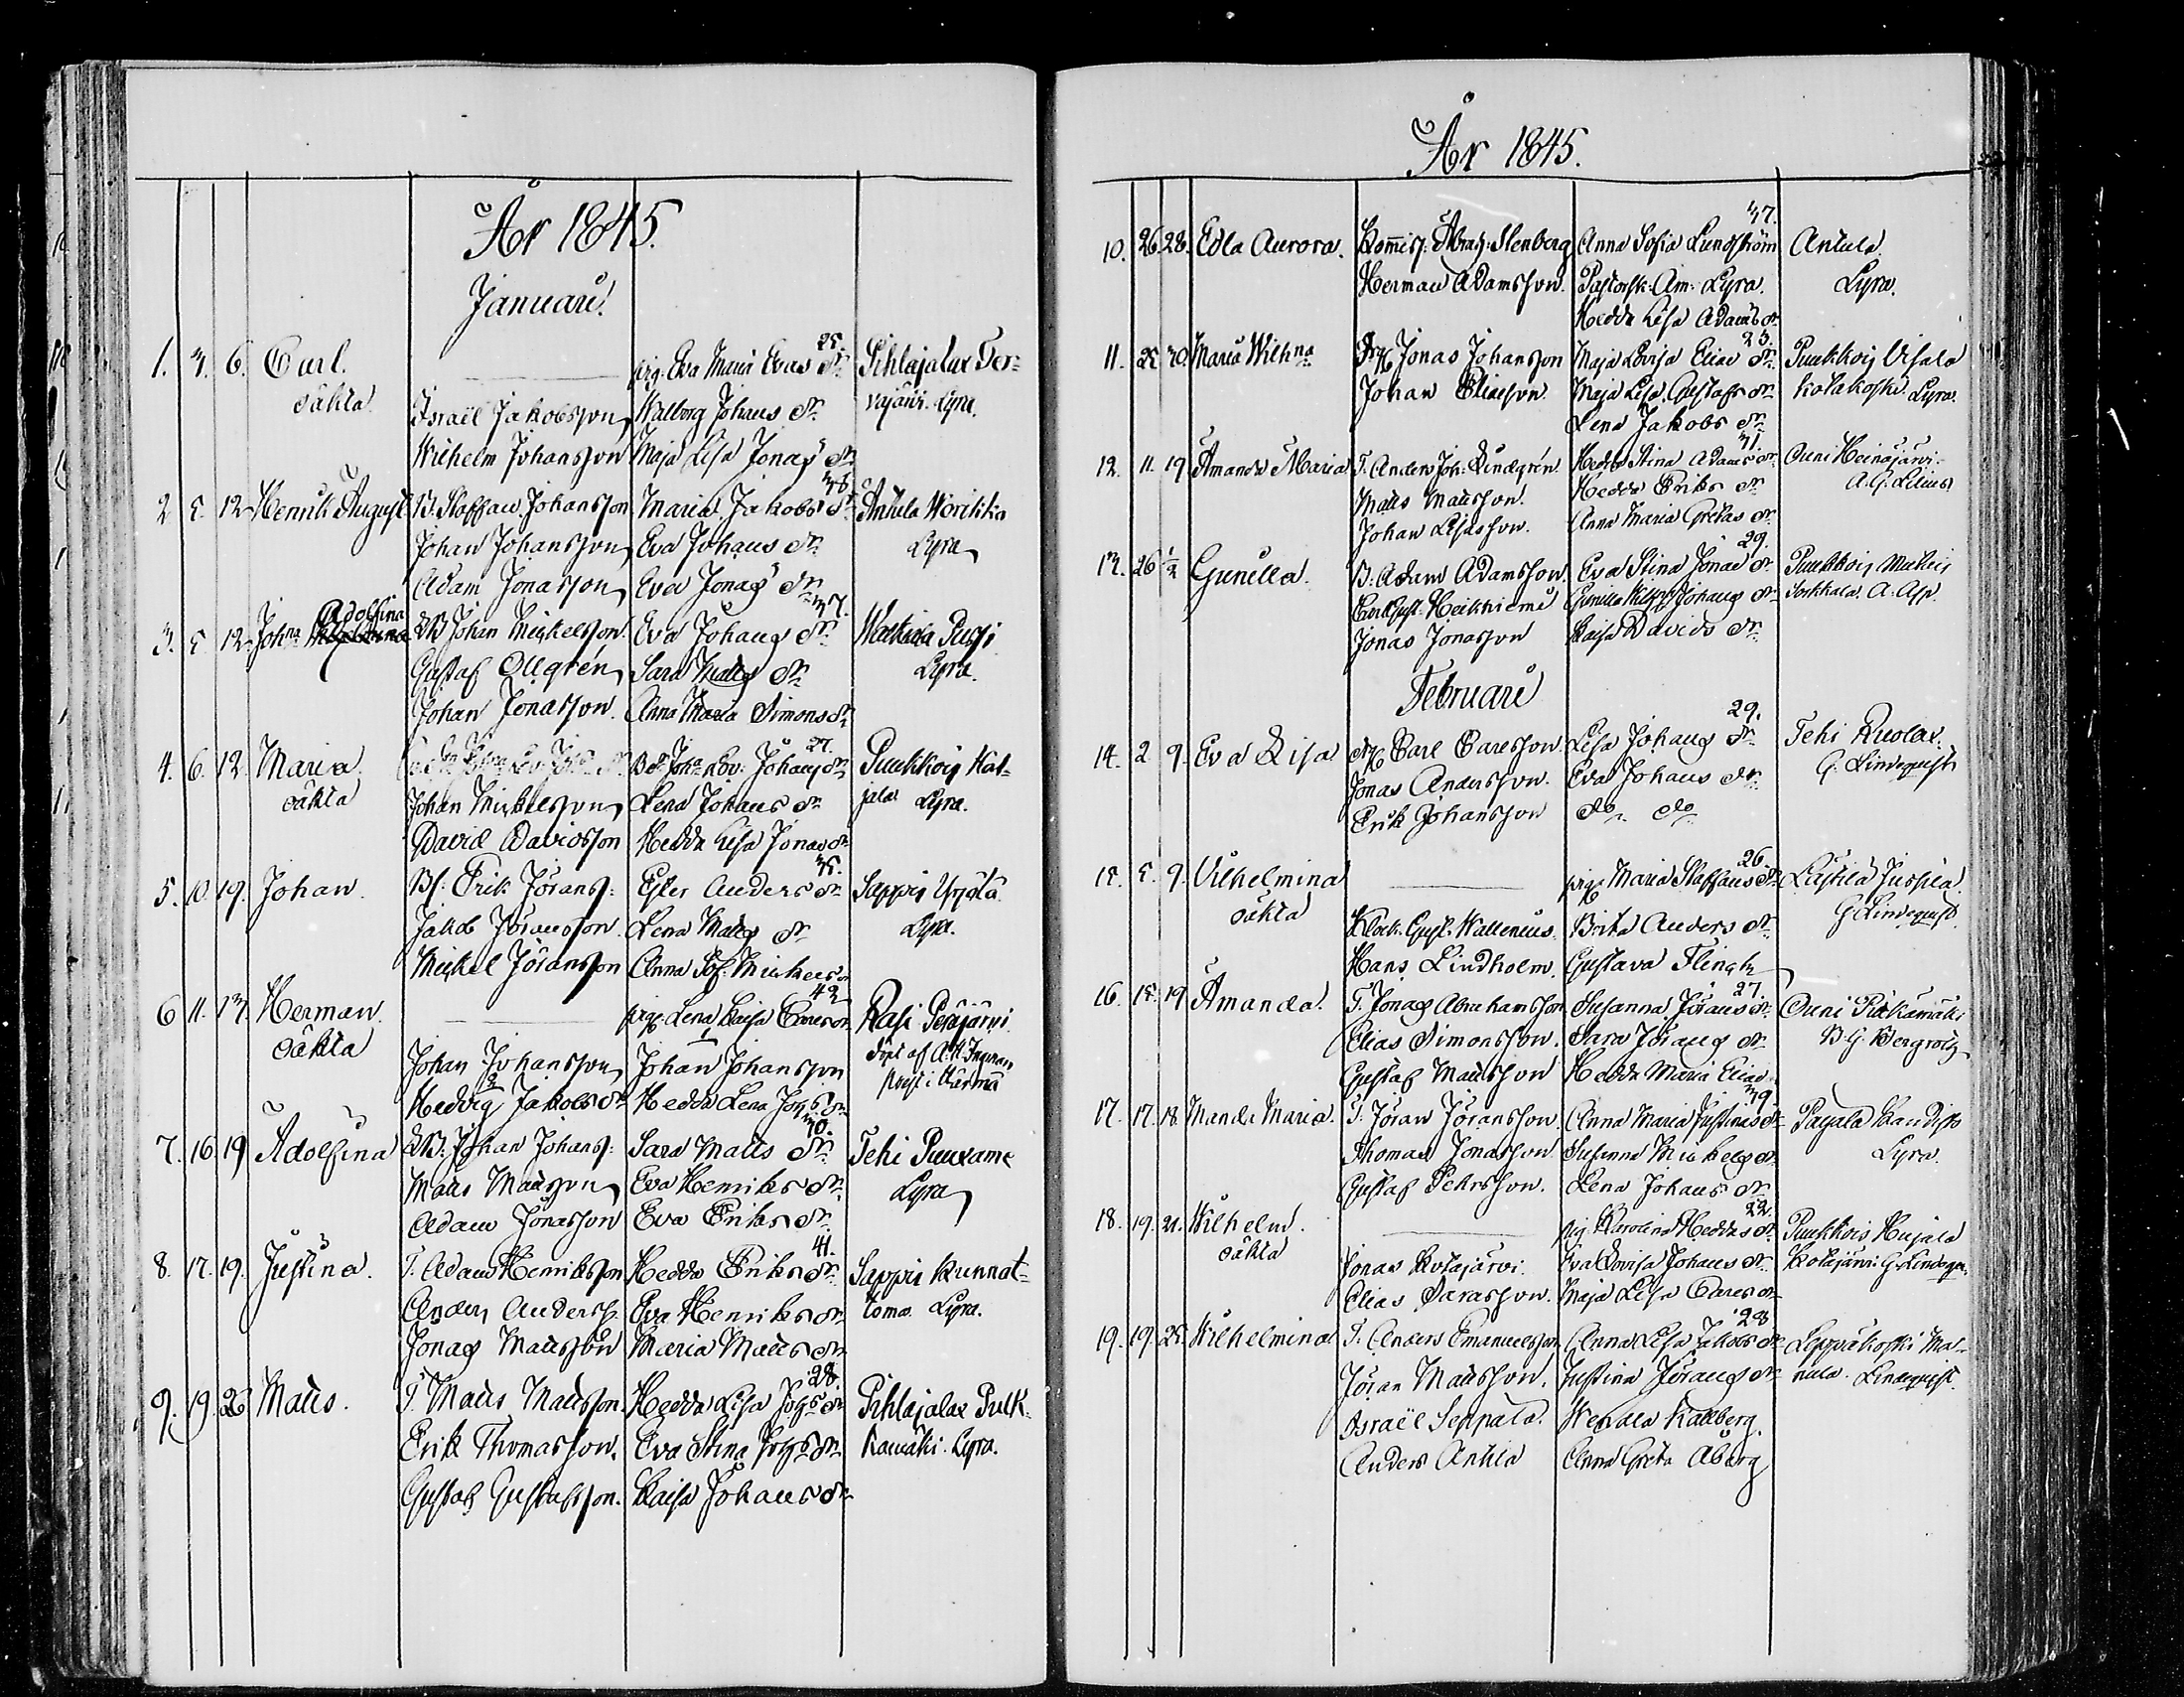 År 1845.
Januari.
1. 3. 6. Carl. pig. Eva Maria Evas dr 25. Pihlajalax Ter-
oäkta Israël Jakobsson Walborg Johans dr vajärvi. Lyra.
Wilhelm Johansson Maja Lisa Jonas dr
2 5. 12 Henrik August B. Staffan Johansson Maria Jakobs dr 38 Antula Worikka
Johan Johansson Eva Johans dr Lyra
Adam Jonasson Eva Jonas dr
3. 5 12 Johna Adolfina Johan Mickelsson Eva Johans dr 37. Pussi
Gustaf Ollgrén Sara Matts dr Lyra.
Johan Jonasson. Anna Maria Simons dr
4. 6. 12. Maria Joha Lov. Johans dr 27. Punkkois Hat-
oäkta Johan Mickelsson Lena Johans dr jala Lyra.
David Davidsson Hedda Lisa Jonas dr
5. 10. 19. Johan. Erik Jöranss: Ester Anders dr 35. Sappis
Jakob Jöransson. Lena Matts dr Lyra.
Mickel Jöransson Anna Sof. Mickels dr
6 11. 13. Herman. pig. Lena Kaisa Carls dr 42 Rasi Pesäjärvi
oäkta Johan Johansson Johan Johansson döpt af A. H. Ingman
Hedvig Jakobs dr Hedda Lena Johs dr prest i Härmä
7. 16. 19 Adolfina Johan Johanss: Sara Matts dr 30. Tehi
Matts Mattsson Eva Henriks dr Lyra
Adam Jonasson Eva Eriks dr
8. 17. 19. Justina. T. Adam Henriksson Hedda Eriks dr 41. Sappis Kunnat-
Anders Anderss. Eva Henriks dr toma. Lyra.
Jonas Mattsson Maria Matts dr
9. 19. 26 Matts. T. Matts Mattsson. Hedda Lisa Johs dr 28. Pihlajalax Pulk-
Erik Thomasson. Eva Stina Johs dr kamäki. Lyra.
Gustaf Gustafsson. Kaisa Johans dr
År 1845.
10. 26 28. Edla Aurora. Kommiss: Abrah: Stenberg Anna Sofia Lundström 37. Antula
Herman Adamsson. Pastorsk: Am: Lyra. Lyra.
Hedda Lisa Adams dr
11. 25 30. Maria Wilhna Jonas Johansson Maja Lovisa Elias dr 23. Punkkois Ujala
Johan Eliasson. Maja Lisa Gustafs dr Kotakoski Lyra.
Lena Jakobs dr
12. 11. 19 Amanda Maria T. Anders Joh: Lindegrén. Hedda Stina Adams dr 31. Ouni Heinäjärvi
Matts Mattsson. Hedda Eriks dr A. G. Lilius
Johan Lisasson. Anna Maria Gretas dr
13. 26 1/2 Gunilla. B. Adam Adamsson. Eva Stina Jonas dr 29. Punkkois
Carl Gust. Heikkiemi Gunilla Johans dr A. Asp
Jonas Jonasson Kaisa Davids dr
Februari
14. 2 9. Eva Lisa Carl Carlsson Lisa Johans dr 29. Tehi Kuolax.
Jonas Andersson. Eva Johans dr G. Lindequist
Erik Johansson do do
15. 5. 9. Vilhelmina pig. Maria Staffans dr 26. Lästilä Jussila
oäkta Klock. Gust. Wallenius. Brita Anders dr G Lindequist.
Hans Lindholm. Gustava Flingk
16. 15. 19 Amanda. T. Jonas Abrahamsson Susanna Jörans dr 27. Ouni Pitkämäki
Elias Simonsson. Sara Jörans dr B. G. Bergroth
Gustaf Mattsson Hedda Maria Elias
17. 17. 18. Manda Maria. T. Jöran Jöransson. Anna Maria Justinas dr 39. Payala Kandisto
Thomas Jonasson Susanna Mickels dr Lyra.
Gustaf Pehrsson. Lena Johans dr
18. 19. 21. Wilhelm. pig. Karolina Heddas dr 22. Punkkois Hujala
oäkta Jonas Kotajärvi. Eva Lovisa Johans dr Kotajärvi G. Lindequ.
Elias Sarasson. Maja Lisa Carls dr
19. 19. 25. Wilhelmina T. Anders Emanuelsson Anna Lisa Jakobs dr 28 Leppäkoski Mat-
Jöran Mattsson. Justina Jörans dr tula. Lindequist.
Israël Seppälä. Wendla Kallberg.
Anders Anttila Anna Greta Åberg